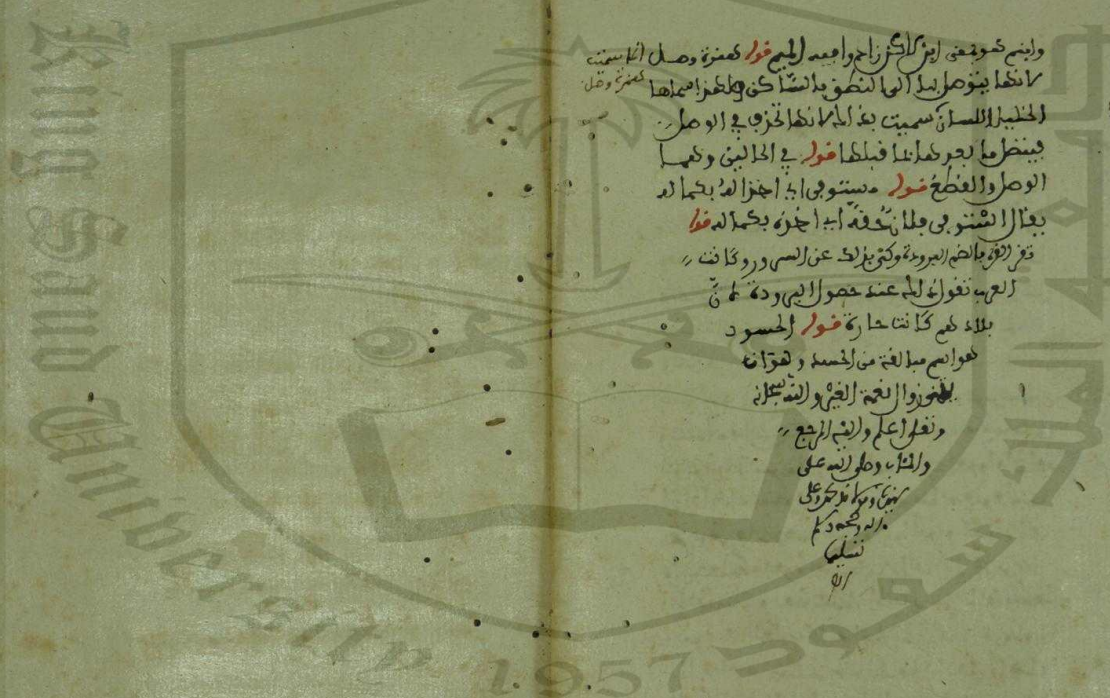 وابنم هو بمعنى ابن لاكن زاده وا فيه الميم قوله همزة وصل انما سميت همزة وصل
لانها يتوصل بها الى النطق بالساكن ولهذا سماها
الخليل سلم اللسان سميت بذالك لانها تحذف في الوصل
فيتصل ما بعدها بما قبلها قوله في الحالين وهما
الوصل والقطع قوله مستوفى اي اخذا له بكماله
يقال استوفى فلان حقه اي اخذه بكماله قوله
تقر القر بالضم البرودة وكنى بذلك عن السرور وكانت
العرب تقول ذالك عند حصول البرودة لان
بلادهم كانت حارة قوله الحسود
هو اسم مبالغة من الحسد وهو ان
يتمنى زوال نعمة الغير والله سبحانه
وتعلى اعلم واليه المرجع
والمئاب وصلى الله على
سيدنا ومولانا محمد وعلى
ءاله وصحبه وسلم
تسليما